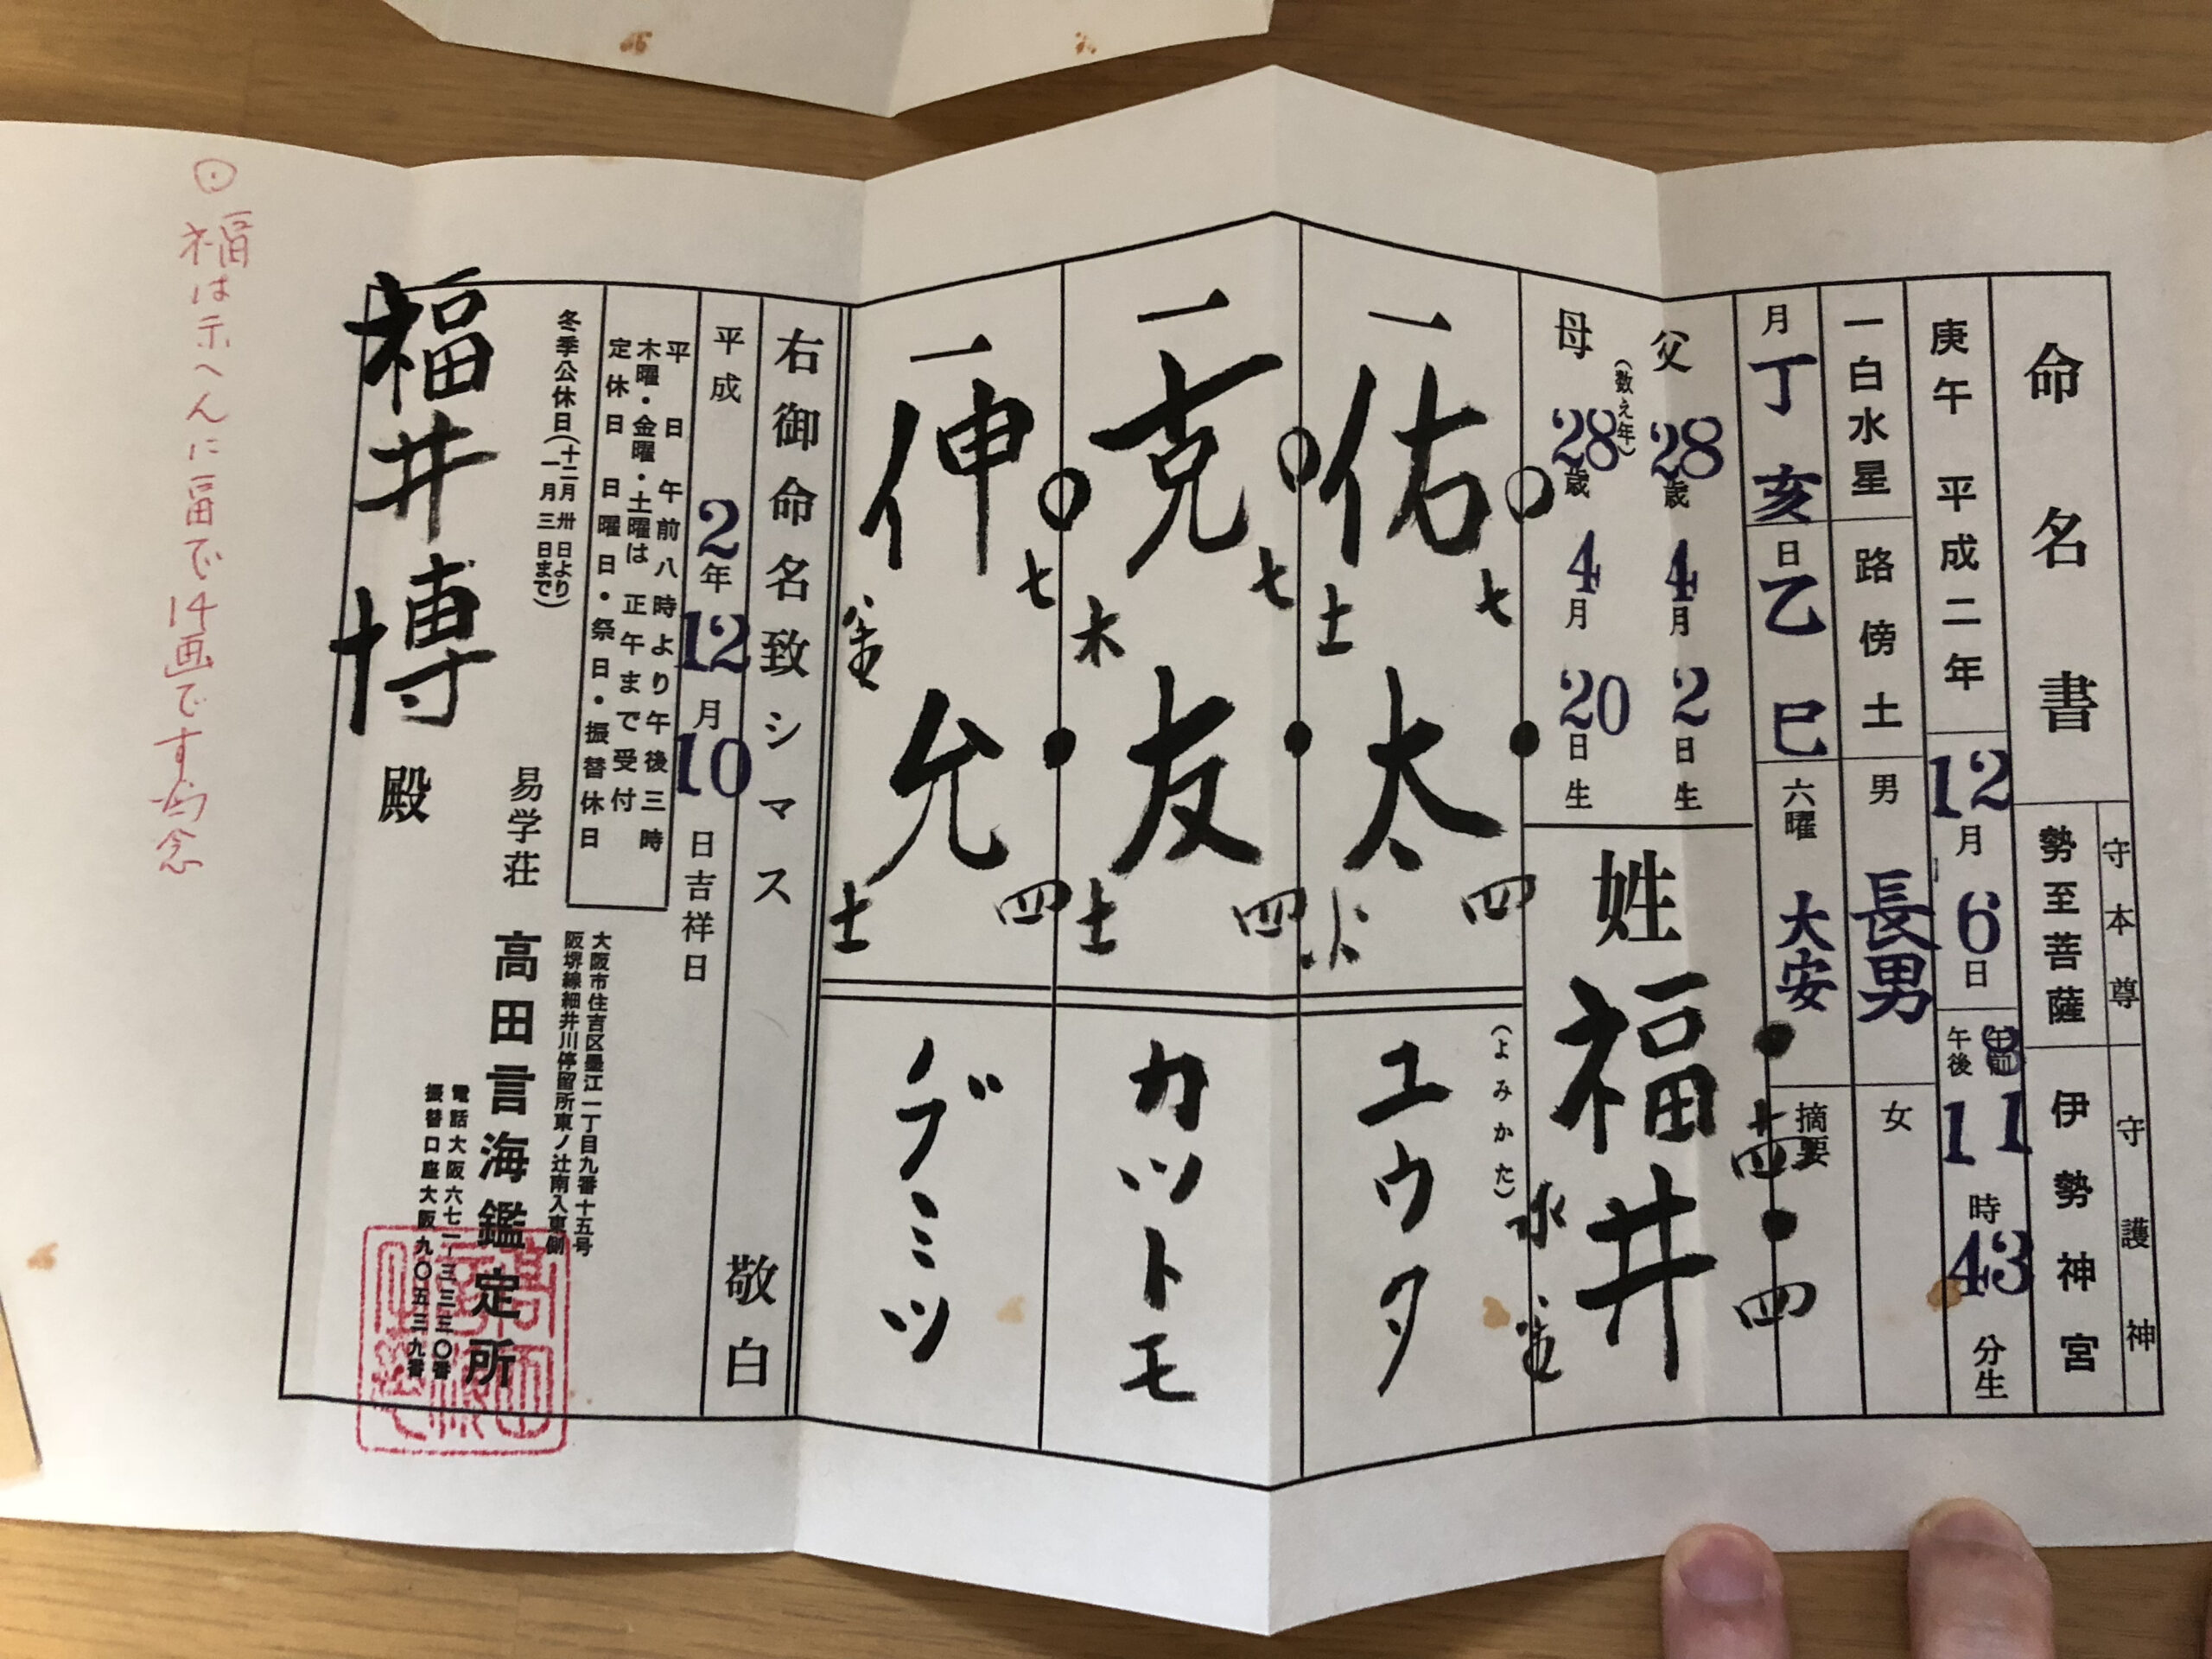 命名書
守本尊
勢至菩薩
守護神
伊勢神宮
庚午 平成二年 12月6日 午前 午後 11時43分生
一白水星 路傍土 男 長男 女
月 丁亥 日 乙巳 六曜 大安 摘要
父 28歳 4月2日生
(数え年)
母 28歳 4月20日生
姓 福井
十四
四
水
金
(よみかた)
一 佑太 ユウタ
七
四
土
火
一 克友 カツトモ
七
四
木
土
一 伸允 ノブミツ
七
四
金
土
右御命名致シマス 敬白
平成2年12月10日吉祥日
平日 午前八時より午後三時
木曜・金曜・土曜は正午まで受付
定休日 日曜日・祭日・振替休日
冬季公休日(十二月卅日より
一月三日まで)
大阪市住吉区墨江一丁目九番十五号
阪堺線細井川停留所東ノ辻南入東側
易学荘 高田言海鑑定所
電話大阪六七一-三三三〇番
振替口座大阪九〇五三九番
福井博殿
⊙福は示へんに畐で14画です 為念